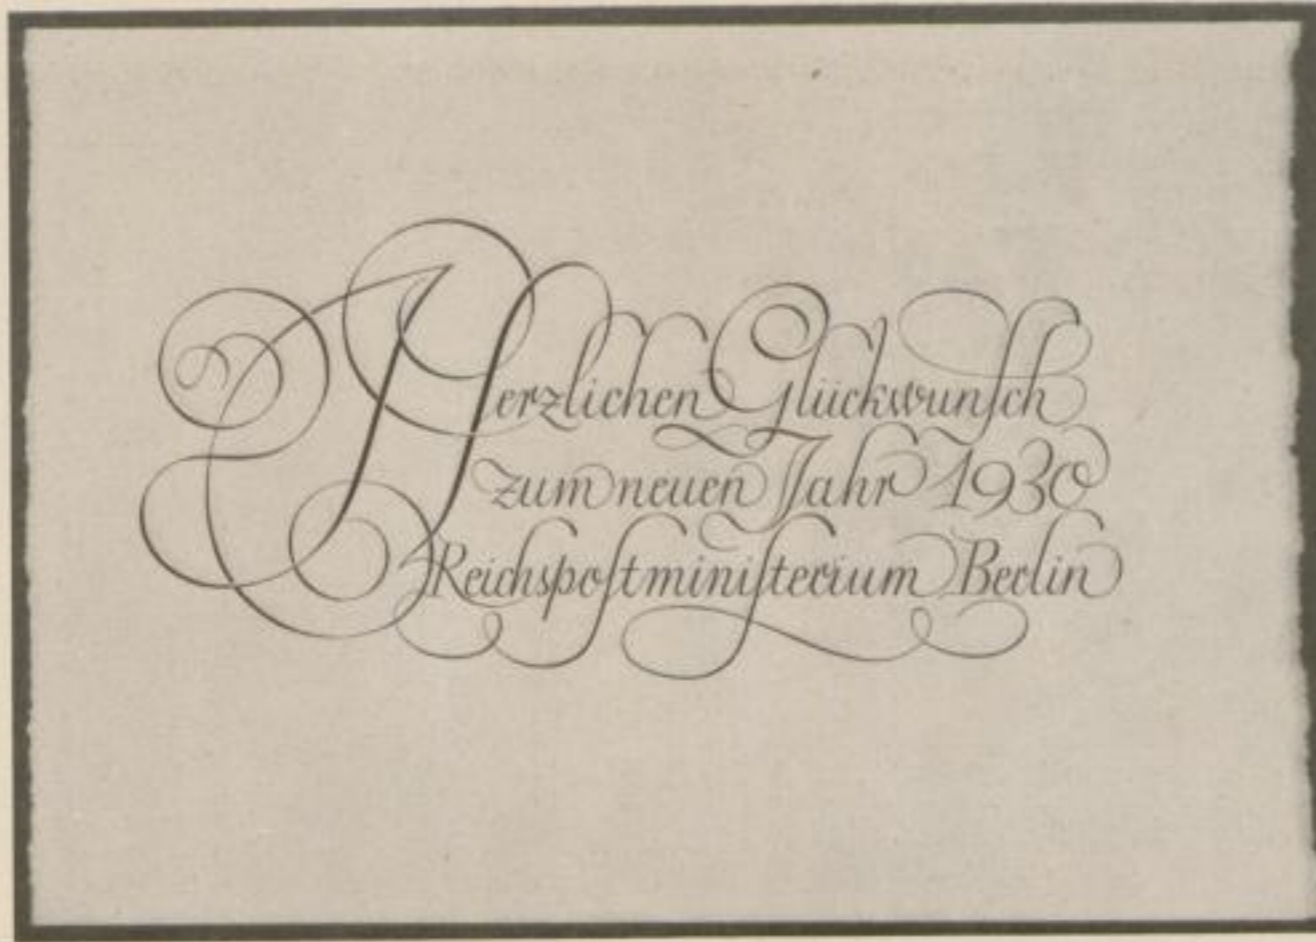 Herzlichen Glückwunſch
zum neuen Jahr 1930
Reichspoſtminiſterium Berlin